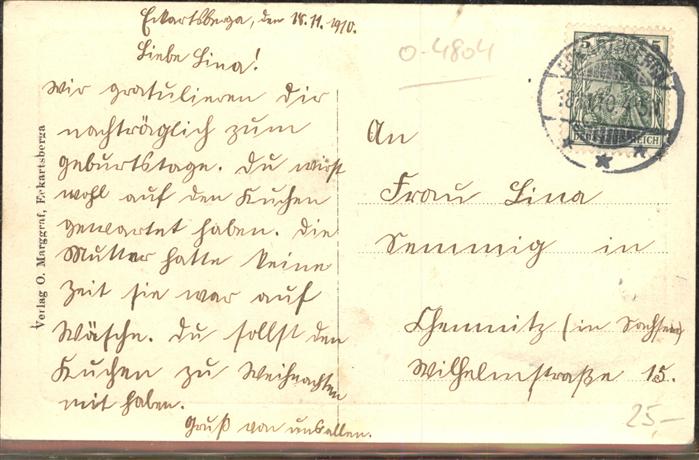 Eckartsberga, den 18.11.1910.
Liebe Lina!
Wir gratulieren dir
nachträglich zum
geburtstage. Du wirst
wohl auf den Kuchen
gewartet haben. Die
Mutter hatte keine
Zeit sie war auf
Wäsche. Du sollst den
Kuchen zu Weihnachten
mit haben.
Gruß von uns allen.
Verlag O. Marggraf, Eckartsberga
0-4804
An
Frau Lina
Semmig in
Chemnitz (in Sachsen)
Wilhelmstraße 15.
25,-